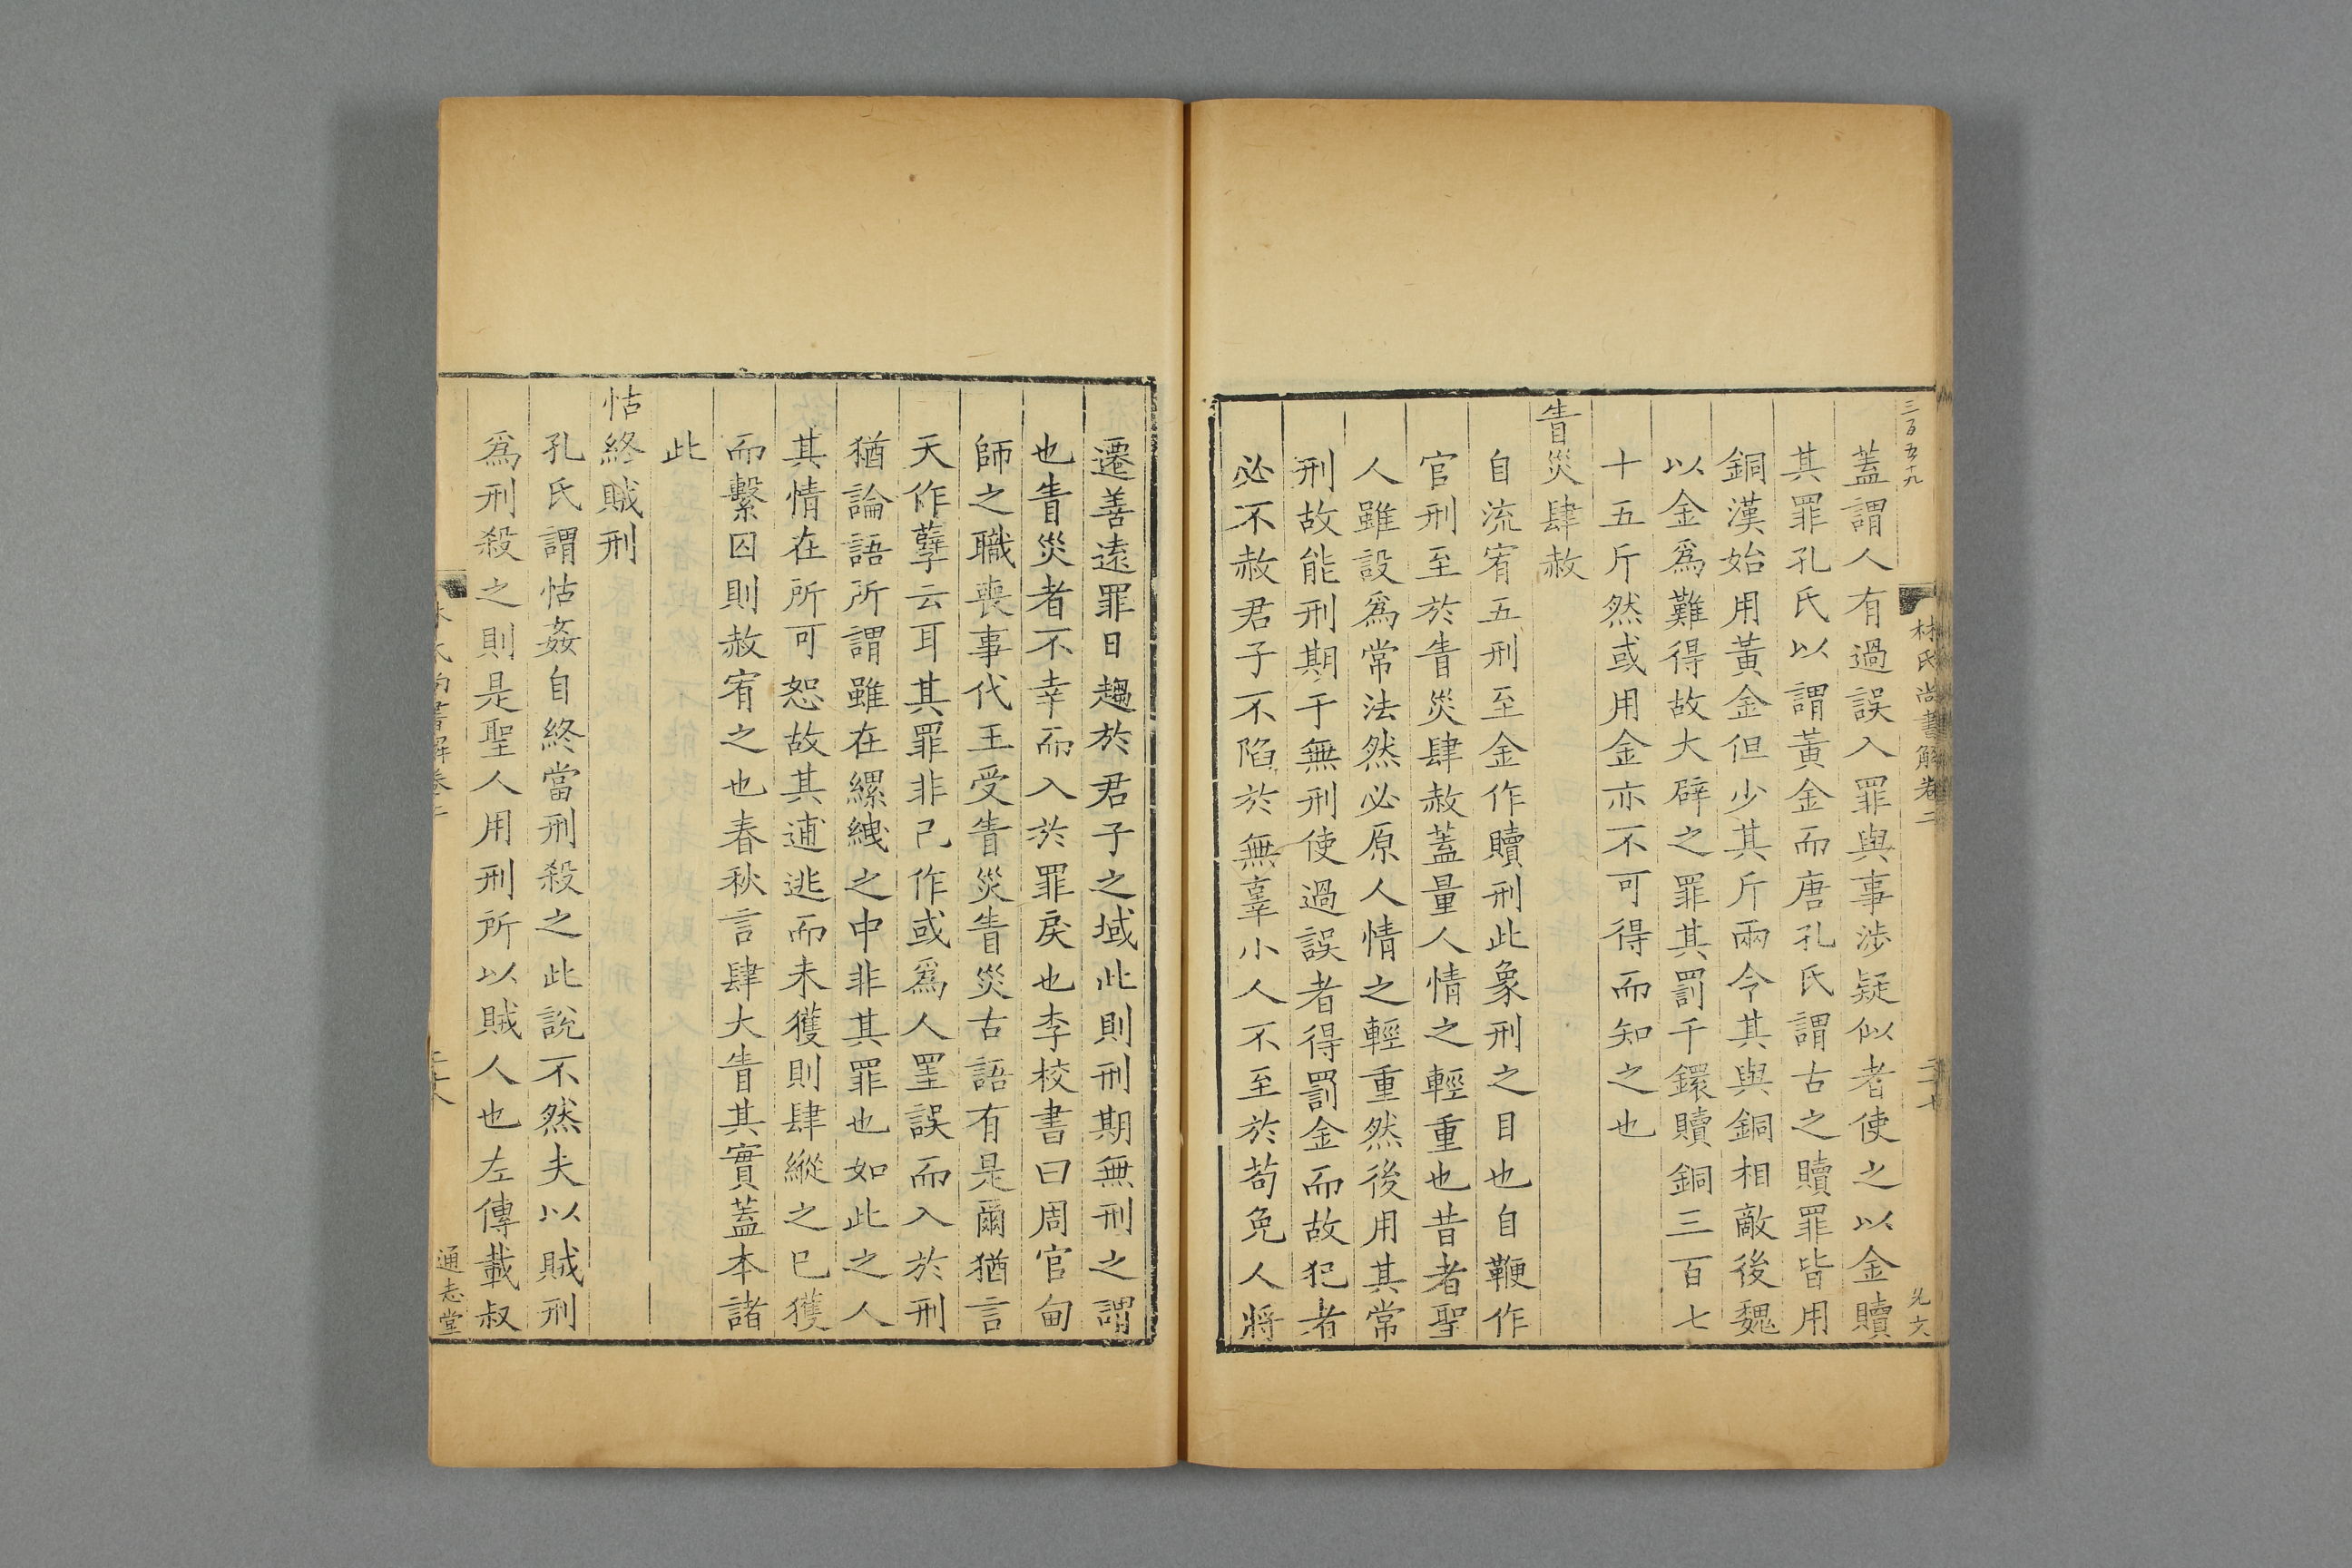 三百五十九
林氏尚書解卷二
二十七
光文
蓋謂人有過誤入罪與事涉疑似者使之以金贖
其罪孔氏以謂黃金而唐孔氏謂古之贖罪皆用
銅漢始用黃金但少其斤兩今其與銅相敵後魏
以金爲難得故大辟之罪其罰千鍰贖銅三百七
十五斤然或用金亦不可得而知之也
眚災肆赦
自流宥五刑至金作贖刑此象刑之目也自鞭作
官刑至於眚災肆赦蓋量人情之輕重也昔者聖
人雖設爲常法然必原人情之輕重然後用其常
刑故能刑期于無刑使過誤者得罰金而故犯者
必不赦君子不陷於無辜小人不至於苟免人將
遷善遠罪日趨於君子之域此則刑期無刑之謂
也眚災者不幸而入於罪戾也李校書曰周官甸
師之職喪事代王受眚災眚災古語有是爾猶言
天作孽云耳其罪非己作或爲人罣誤而入於刑
猶論語所謂雖在縲絏之中非其罪也如此之人
其情在所可恕故其逋逃而未獲則肆縱之已獲
而繫囚則赦宥之也春秋言肆大眚其實蓋本諸
此
怙終賊刑
孔氏謂怙姦自終當刑殺之此說不然夫以賊刑
爲刑殺之則是聖人用刑所以賊人也左傳載叔
通志堂